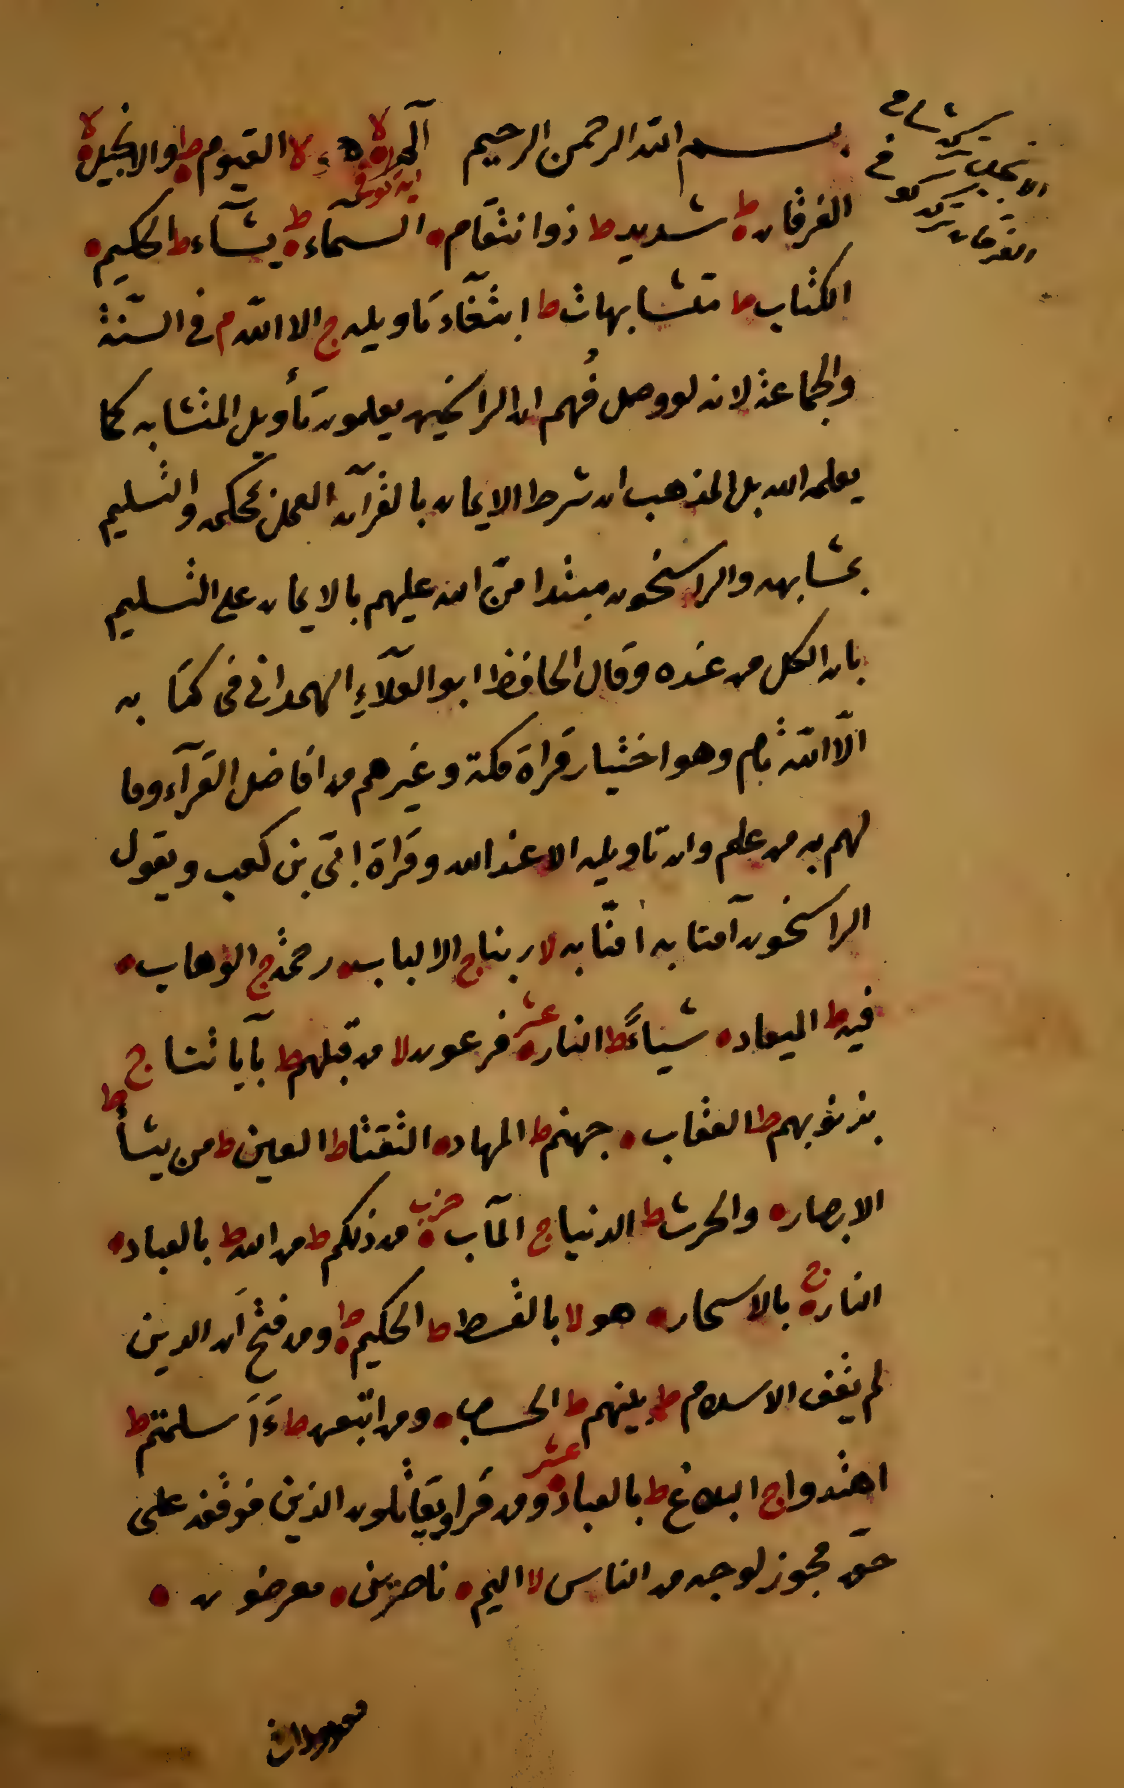 بسم الله الرحمن الرحيم الم ه لا هو لا القيوم ط والانجيل ه لا
اية كوفى
الفرقان ه ط شديد ط ذو انتقام ه السماء ه ط يشآء ط الحكيم ه
الكتاب ط متشابهات ط ابتغآء تاويله ج الا الله م فى السنة
والجماعة لانه لو وصل فُهم ان الراسخين يعلمون تأويل المتشابه كما
يعلمه الله بل المذهب ان شرط الايمان بالقرآن العمل بمحكمه والتسليم
بمتشابهه والراسخون مبتدا من الله عليهم بالايمان على التسليم
بان الكل من عنده وقال الحافظ ابو العلآء الهمدانى فى كتابه
الّا الله تام وهو اختيار قراة مكة وغيرهم من افاضل القرآء وما
لهم به من علم وان تاويله الا عند الله وقراة ابىّ بن كعب ويقول
الراسخون آمنا به امنّا به لا ربنا ج الالباب ه رحمة ج الوهاب ه
فيه ط الميعاد ه شياءً ط النار ه عشر فرعون لا من قبلهم ط بآياتنا ج
بذنوبهم ط العقاب ه جهنم ط المهاد ه التقتا ط العين ط من يشأ ط
الابصار ه والحرث ط الدنيا ج المآب ه حزب من ذلكم ط من الله ط بالعباد ه
النار ه ج بالاسحار ه هو لا بالقسط ط الحكيم ه ط ومن فتح أن الدين
لم يقف الاسلام ط بينهم ط الحساب ه ومن اتبعن ط ءَاَسلمتم ط
اهتدوا ج البلاغ ط بالعباد ه عشر ومن قرا ويقاتلون الذين فوقفه على
حق مجوز لوجه من الناس لا اليم ه ناصرين ه معرضون ه